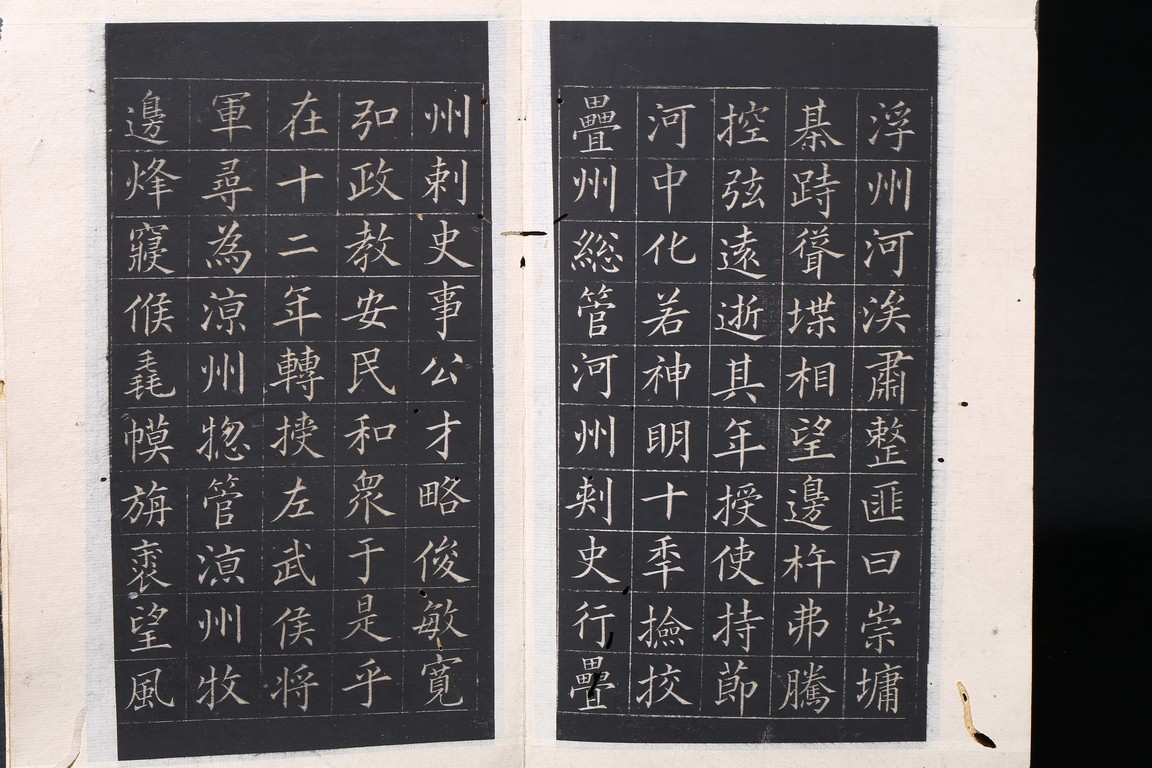 浮州河溪肅整匪曰崇墉
棊跱聳堞相望邊柝弗騰
控弦遠逝其年授使持莭
河中化若神明十秊撿挍
疊州総管河州刾史行疊
州刺史事公才略俊敏寛
弘政教安民和衆于是乎
在十二年轉授左武侯将
軍尋為涼州揔管涼州牧
邊烽寢候毳幙旃裘望風